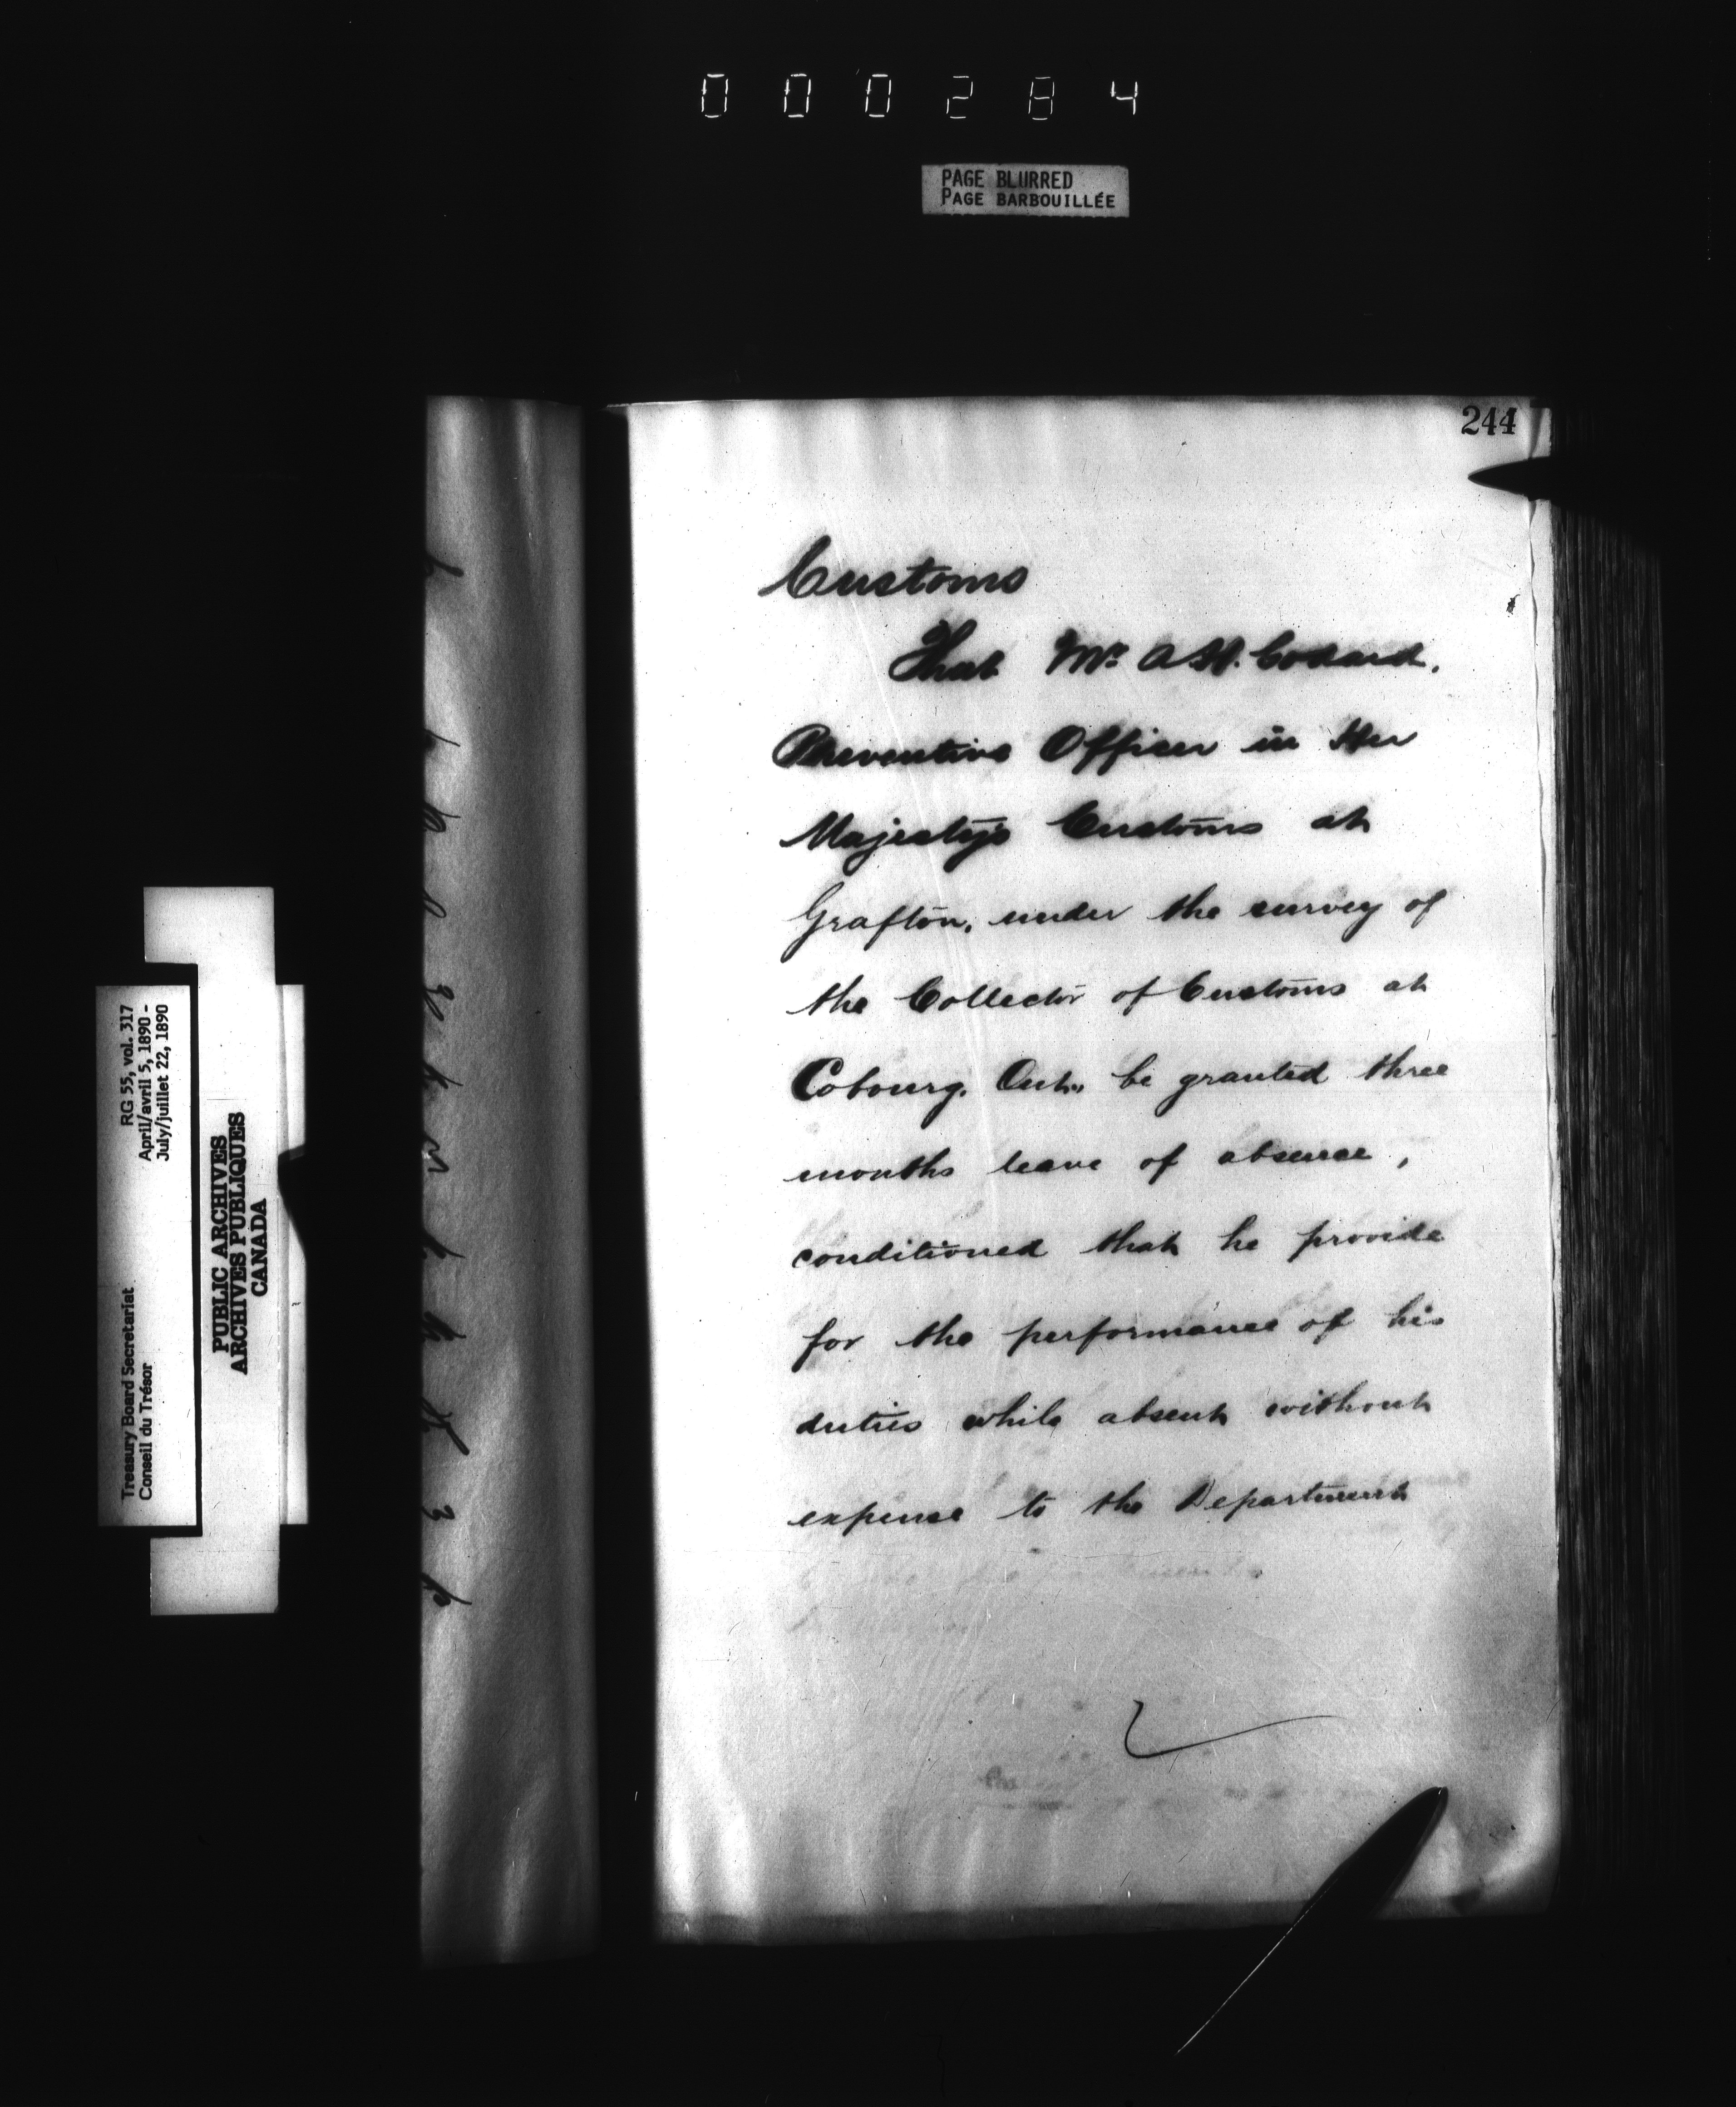 000284
PAGE BLURRED
PAGE BARBOUILLÉE
244
Customs
That Mr. A. H.
Preventive Officer in Her
Majesty's Customs at
Grafton, under the survey of
the Collector of Customs at
Cobourg. Ont., be granted three
months leave of absence,
conditioned that he provide
for the performance of his
duties while absent without
expense to the Department
RG 55, vol. 317
April/avril 5, 1890 -
July/juillet 22, 1890
Treasury Board Secretariat
Conseil du Trésor
PUBLIC ARCHIVES
ARCHIVES PUBLIQUES
CANADA